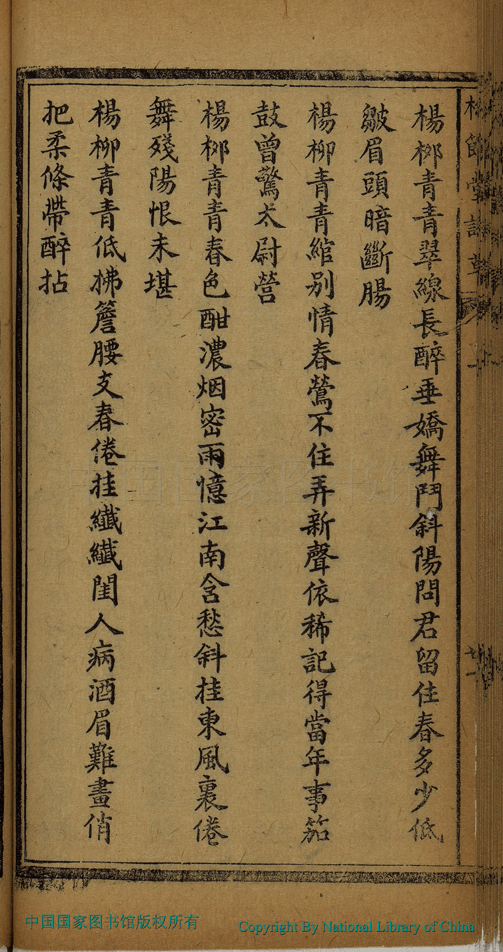 楊栁青青翠線長醉垂嬌舞鬥斜陽問君留住春多少低
皺眉頭暗斷腸
楊柳青青綰別情春鶯不住弄新聲依稀記得當年事笳
鼓曾驚太尉營
楊栁青青春色酣濃烟密雨憶江南含愁斜挂東風裏倦
舞殘陽恨未堪
楊柳青青低拂簷腰支春倦挂纖纖閨人病酒眉難畫俏
把柔條帶醉拈
中国国家图书馆版权所有
Copyright By National Library of China